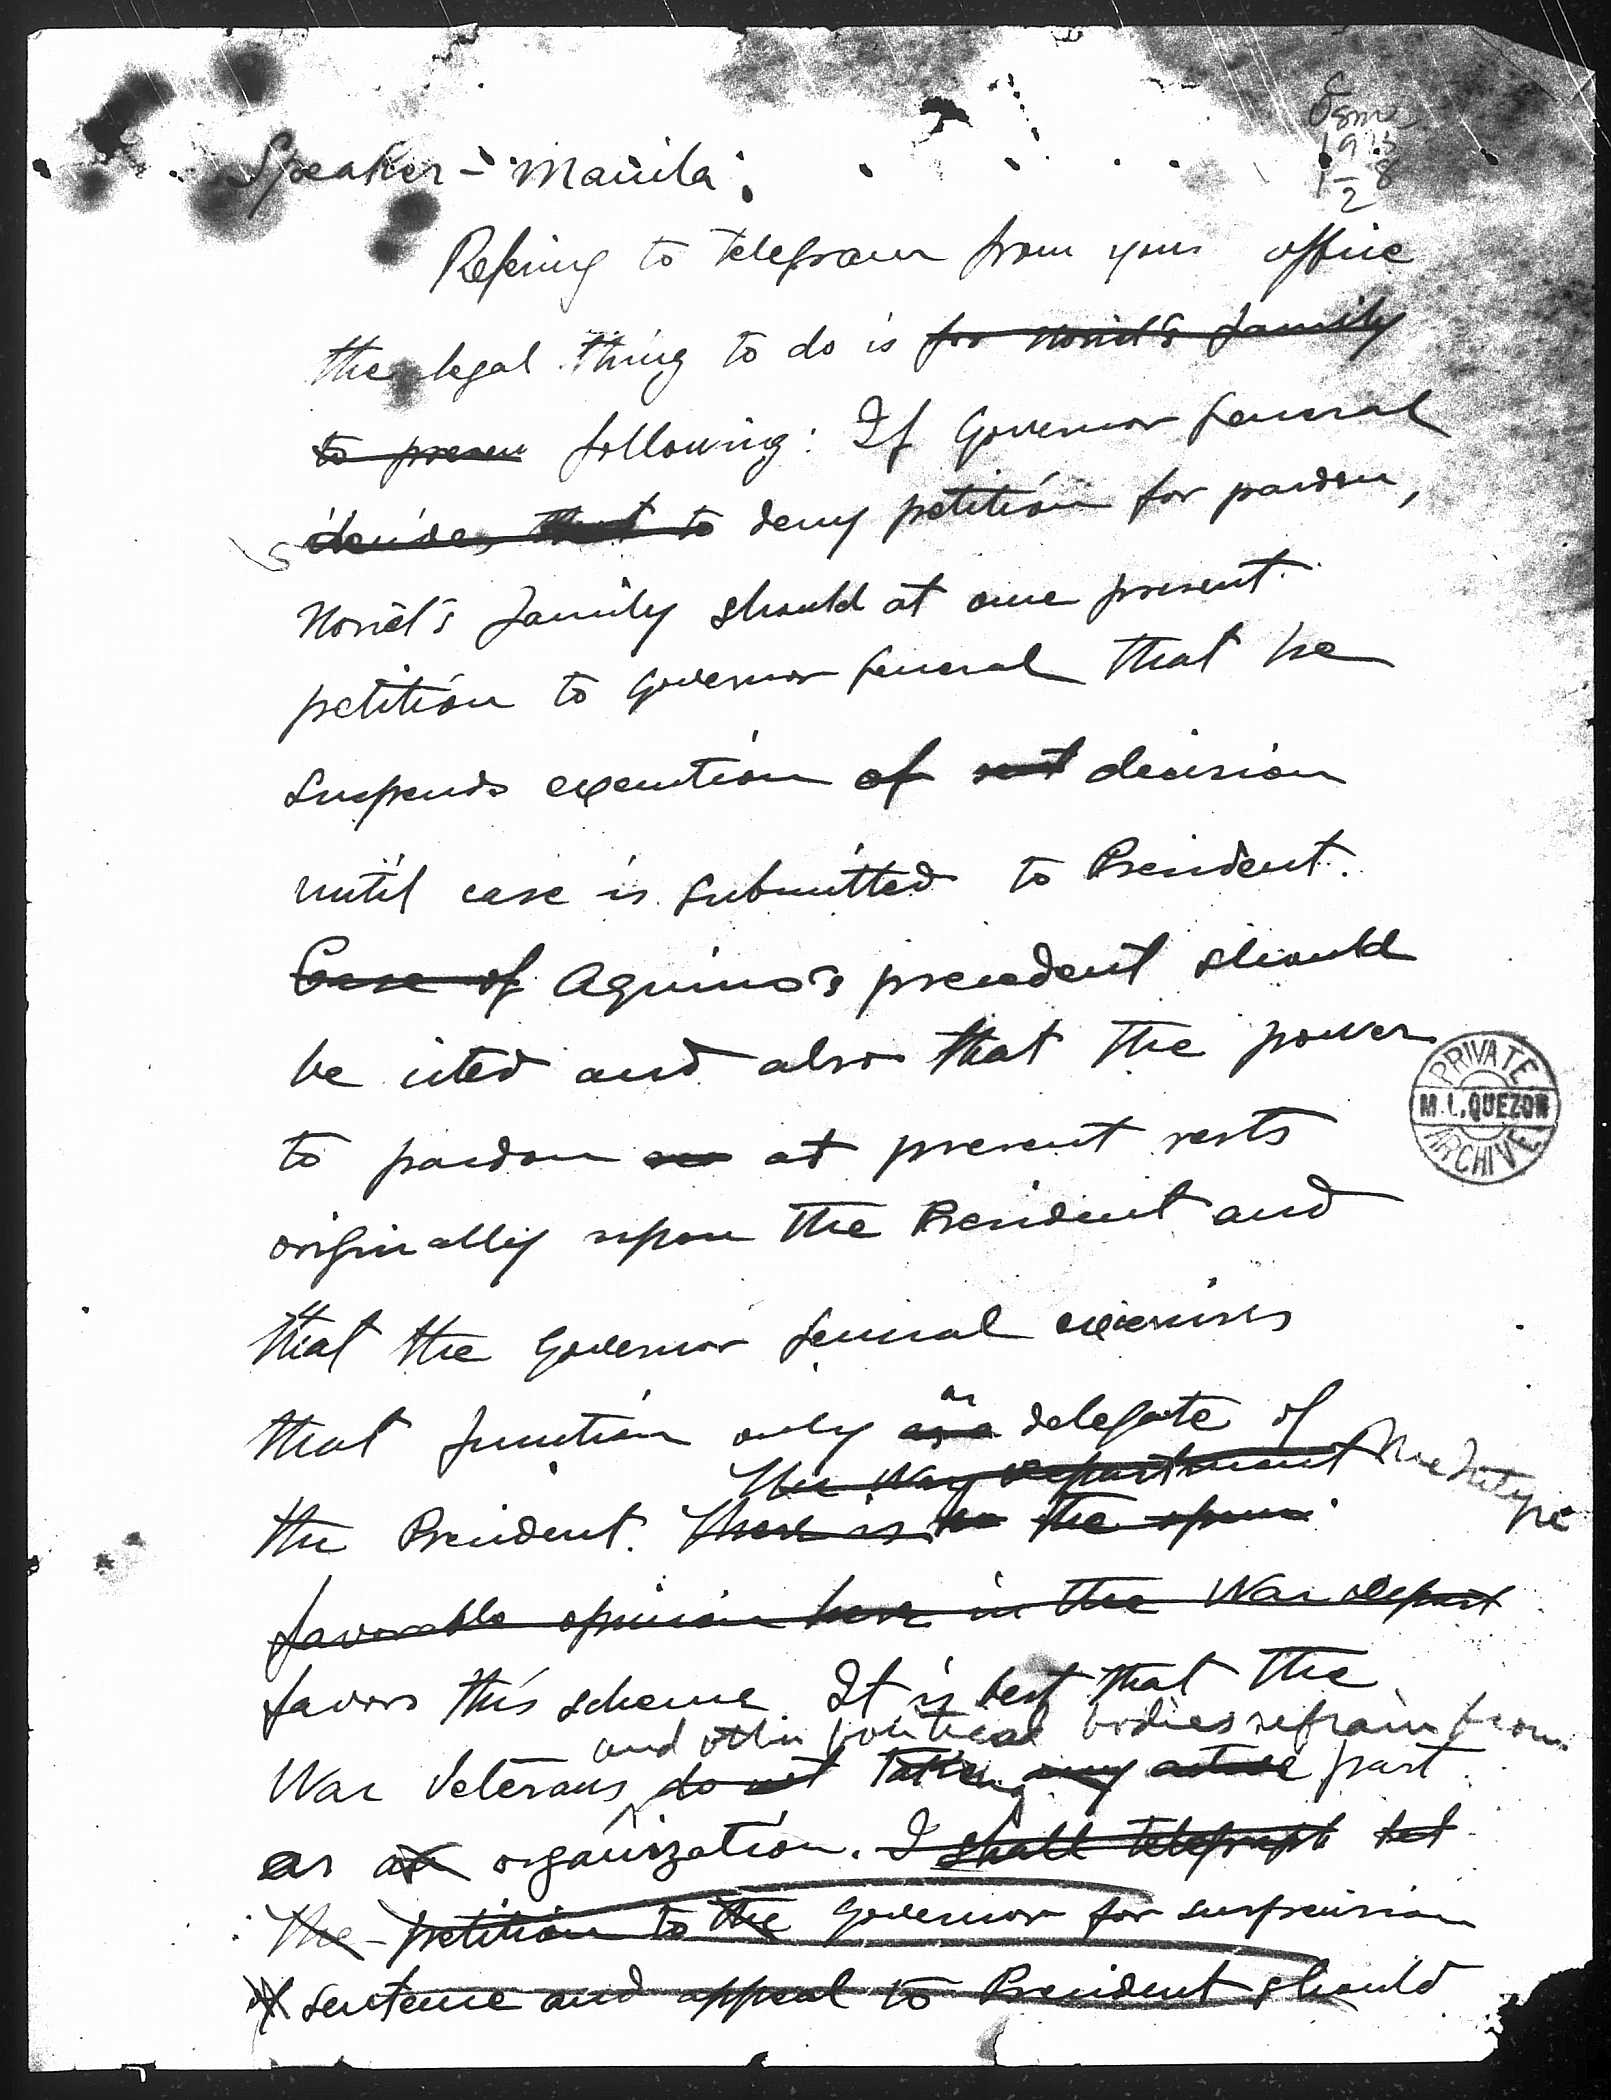 Osm
1915
1-28
2
Speaker - Manila.
Refering to telegram from your office
the legal thing to do is for Noriel's family
to presen following: If Governor General
decides that to deny petition for pardon,
Noriel's family should at once present
petition to Governor General that he
suspends execution of decision
until case is submitted to President.
Case of Aquino's precedent should
be cited and also that the power
PRIVATE
M.L.QUEZON
ARCHIVE
to pardon at present rests
originally upon the President and
that the Governor General exercises
that function only as a delegate of
as
The War Department
the President. There is no the opini
favorable opinion here in the War Depart
favors this scheme It is best that the
and other political bodies refrain from
War Veterans do not taking any active part
as an organization. I shall telegraph
The petition to the Governor for suspension
of sentence and appeal to President should